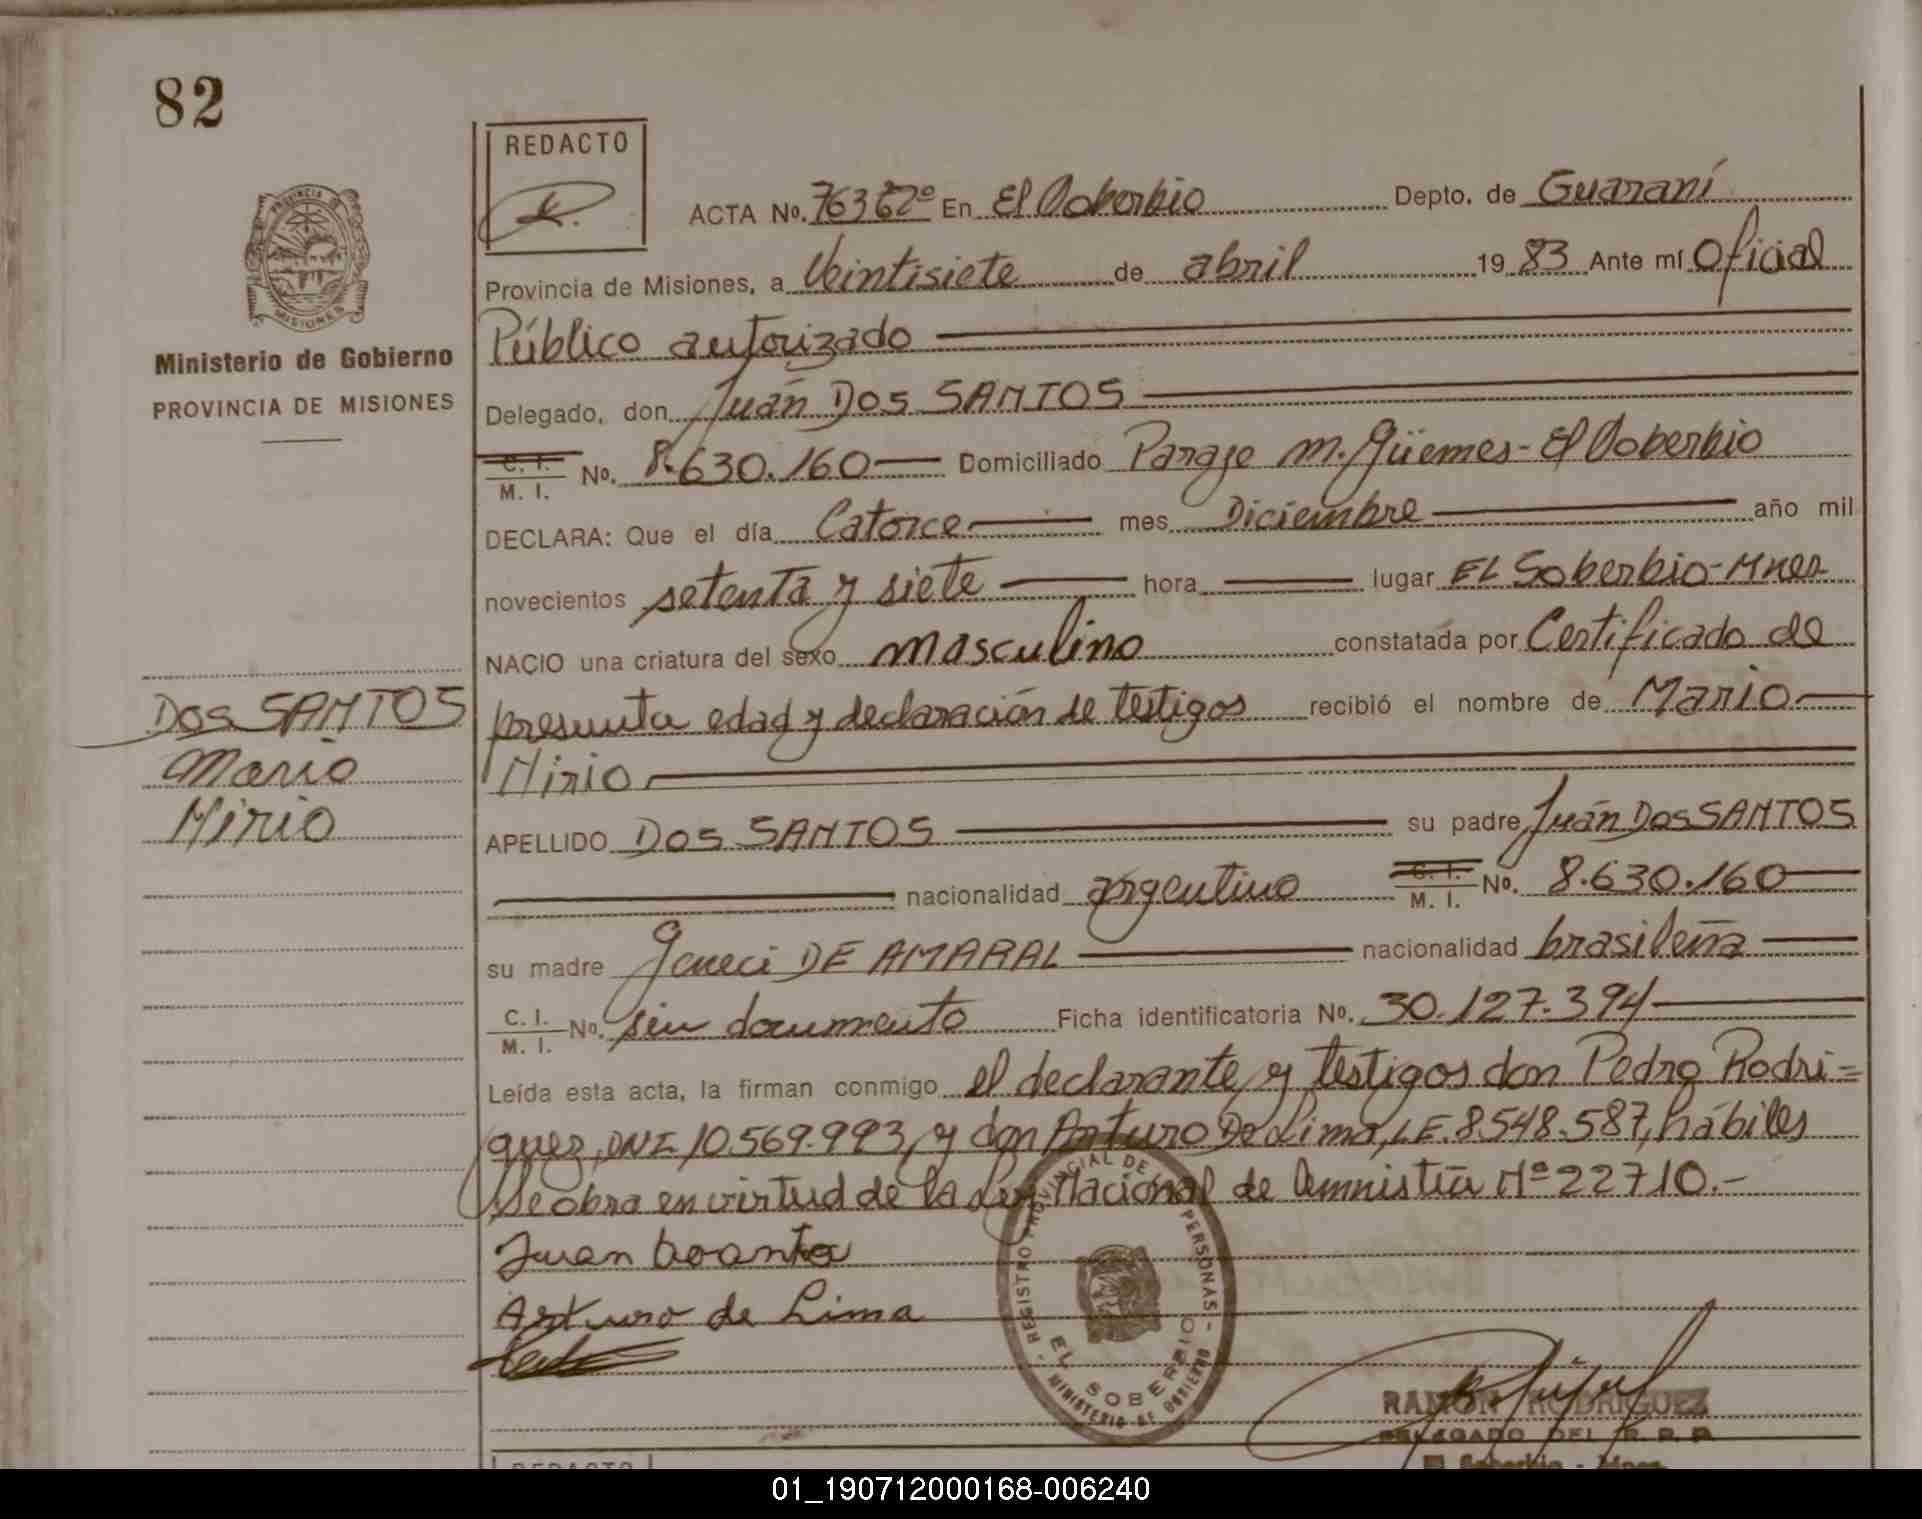 82
REDACTO
ACTA No. En El Soberbio Depto. de Guaraní
Provincia de Misiones, a Veintisiete de abril 1983 Ante mí Oficial
Público autorizado
Delegado, don Juán DOS SANTOS
C. I.
M. I. No. 8.630.160 Domiciliado Paraje M. Güemes - El Soberbio
DECLARA: Que el día Catorce mes Diciembre año mil
novecientos setenta y siete hora lugar EL Soberbio-Mnes
NACIO una criatura del sexo masculino constatada por Certificado de
presunta edad y declaración de testigos recibió el nombre de Mario
Nirio
APELLIDO DOS SANTOS su padre Juán DOS SANTOS
nacionalidad argentino C. I.
M. I. No. 8.630.160
su madre DE AMARAL nacionalidad brasileña
C. I.
M. I. No. sin documento Ficha identificatoria No. 30.127.394
Leída esta acta, la firman conmigo el declarante y testigos don Pedro Rodri=
guez, DNI 10.569.993, y don Arturo De Lima, L.E. 8.548.587, hábiles
Se obra en virtud de la Ley Nacional de Amnistía Nº 22710.-
Juan
Arturo de Lima
PROVINCIA DE MISIONES
Ministerio de Gobierno
PROVINCIA DE MISIONES
DOS SANTOS
Mario
Nirio
REGISTRO PROVINCIAL DE PERSONAS
EL SOBERBIO
MINISTERIO DE GOBIERNO
RAMON RODRIGUEZ
DELEGADO DEL R. P. P.
El Soberbio - Mnes.
REDACTO
01_190712000168-006240